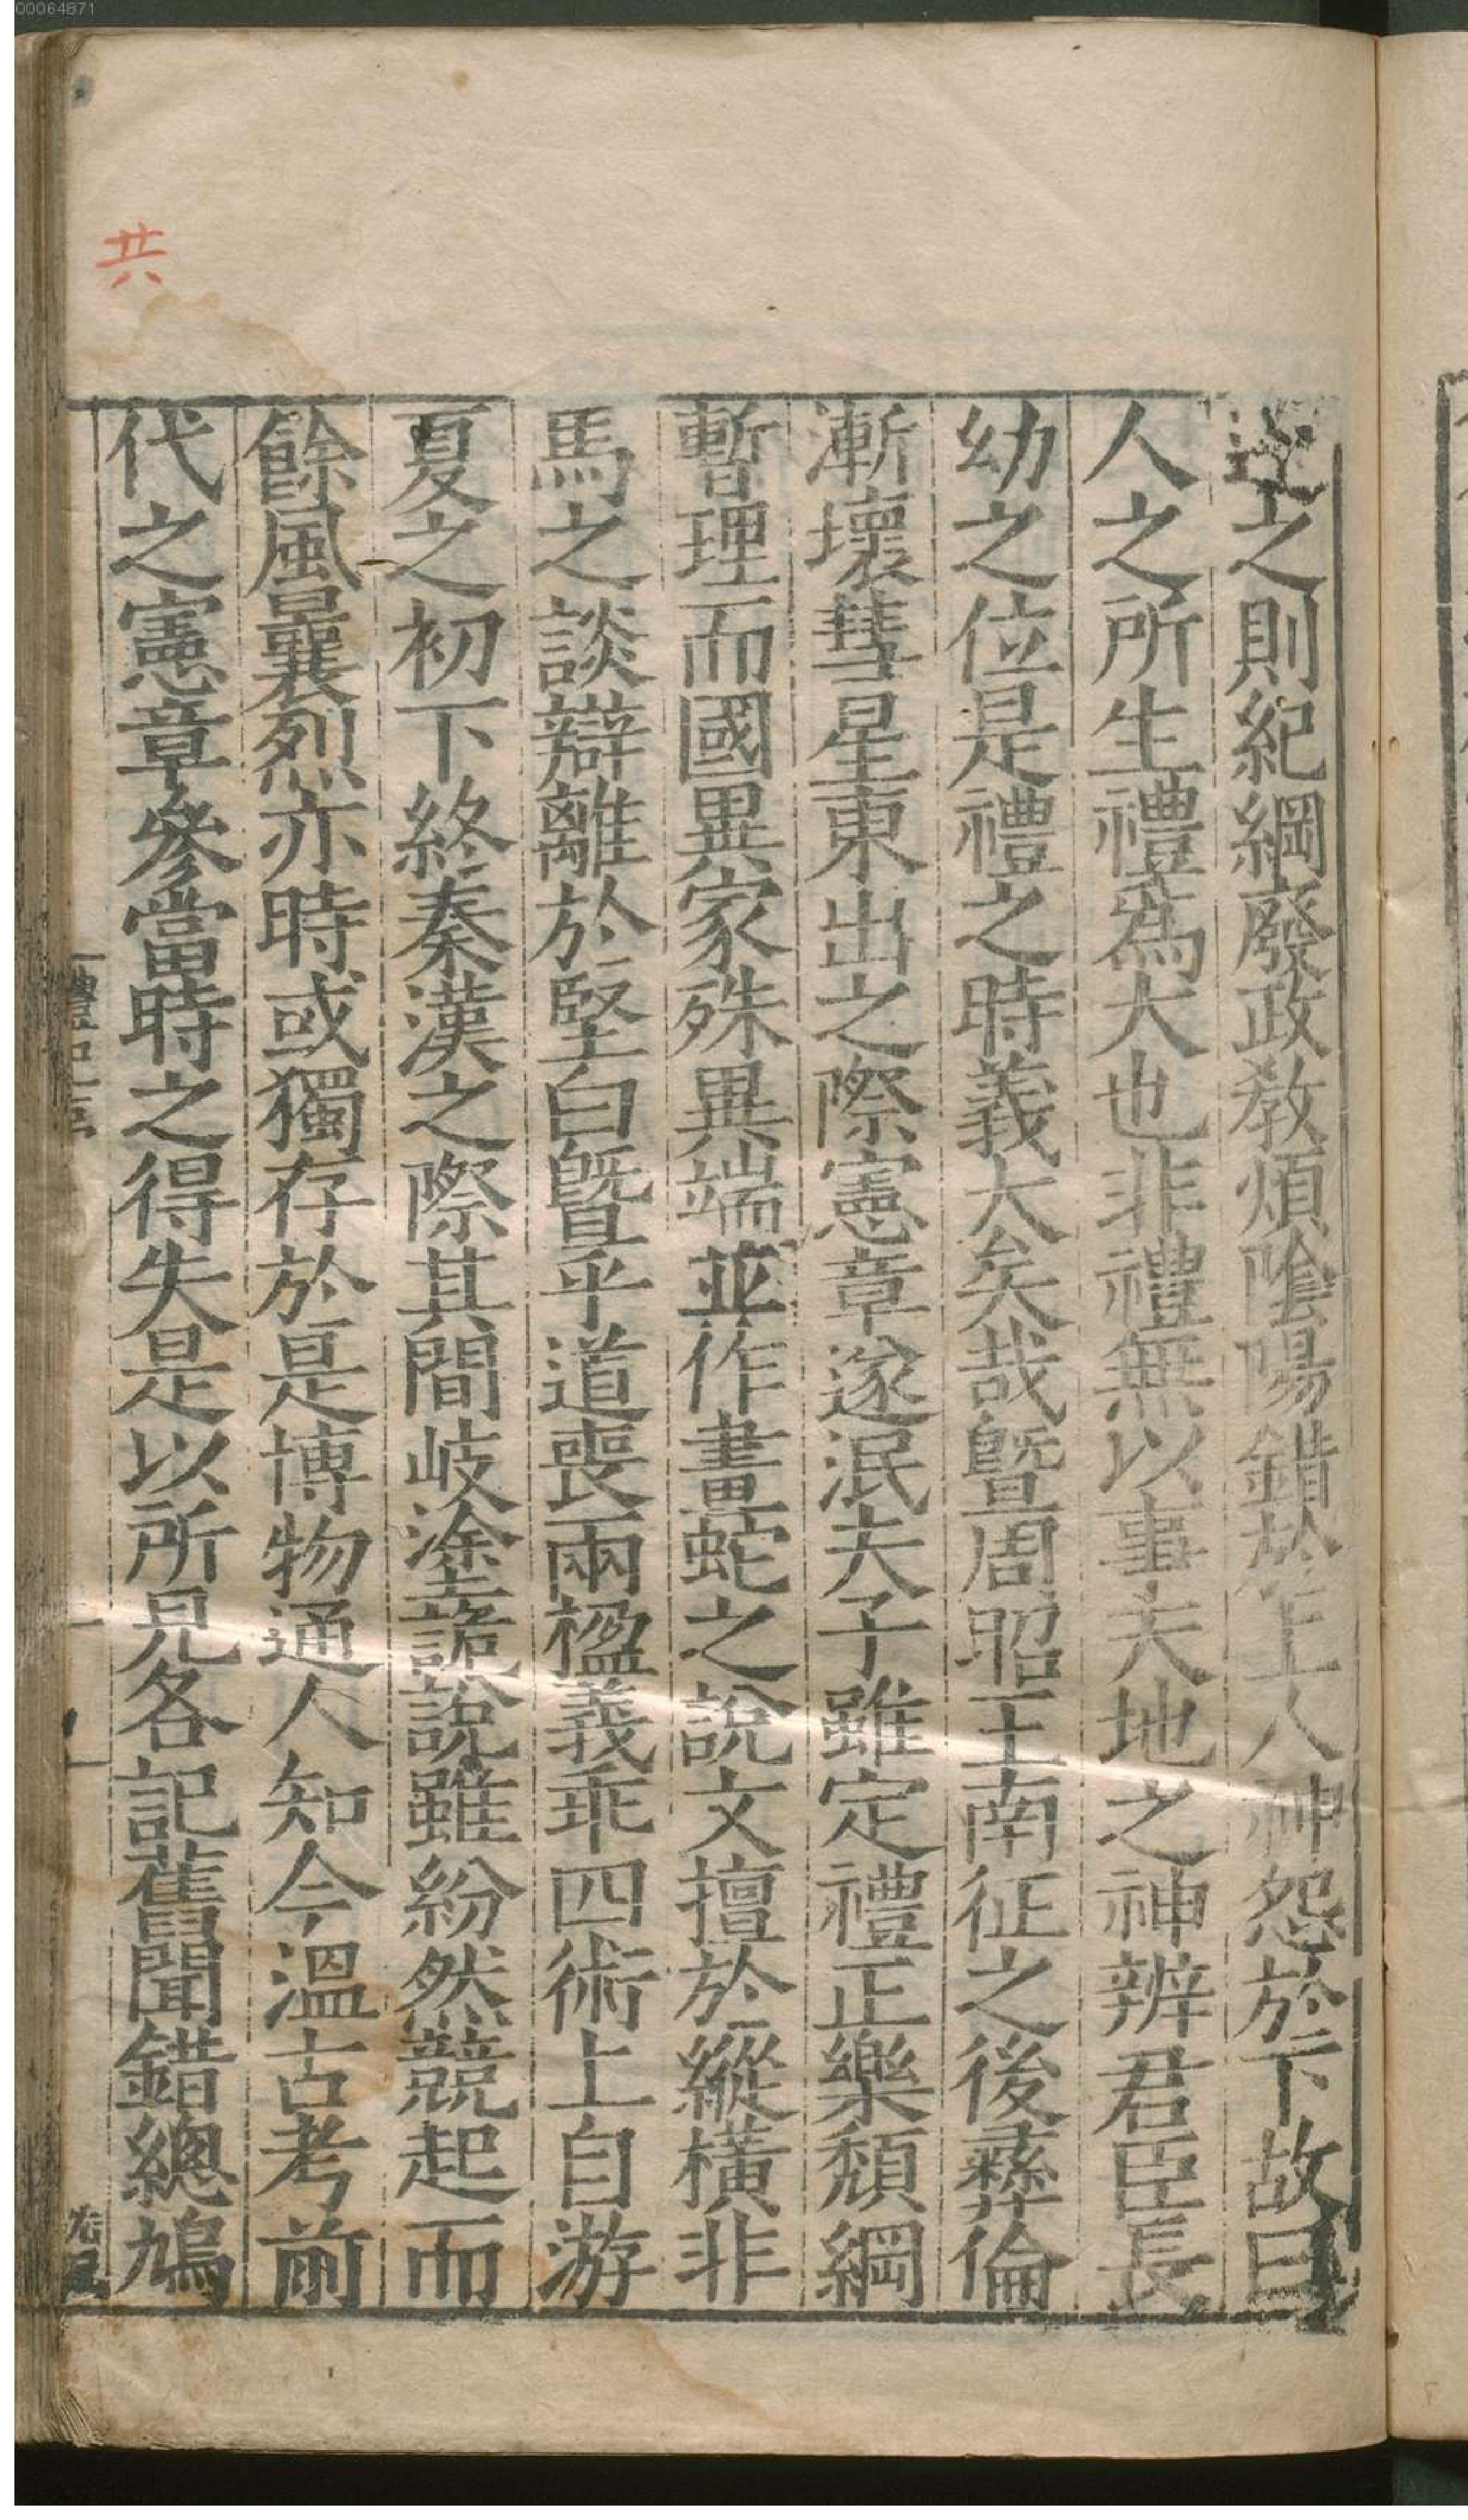 00064871
共
逆之則紀綱廢政敎煩隂陽錯於上人神怨於下故曰
人之所生禮爲大也非禮無以事天地之神辨君臣長
幼之位是禮之時義大矣哉曁周昭王南征之後彝倫
漸壞彗星東出之際憲章遂泯夫子雖定禮正樂頹綱
暫理而國異家殊異端並作畫蛇之說文擅於縱橫非
馬之談辯離於堅白曁乎道喪兩楹義乖四術上自游
夏之初下終秦漢之際其間岐塗詭說雖紛然競起而
餘風曩烈亦時或獨存於是博物通人知今溫古考前
代之憲章參當時之得失是以所見各記舊聞錯總鳩